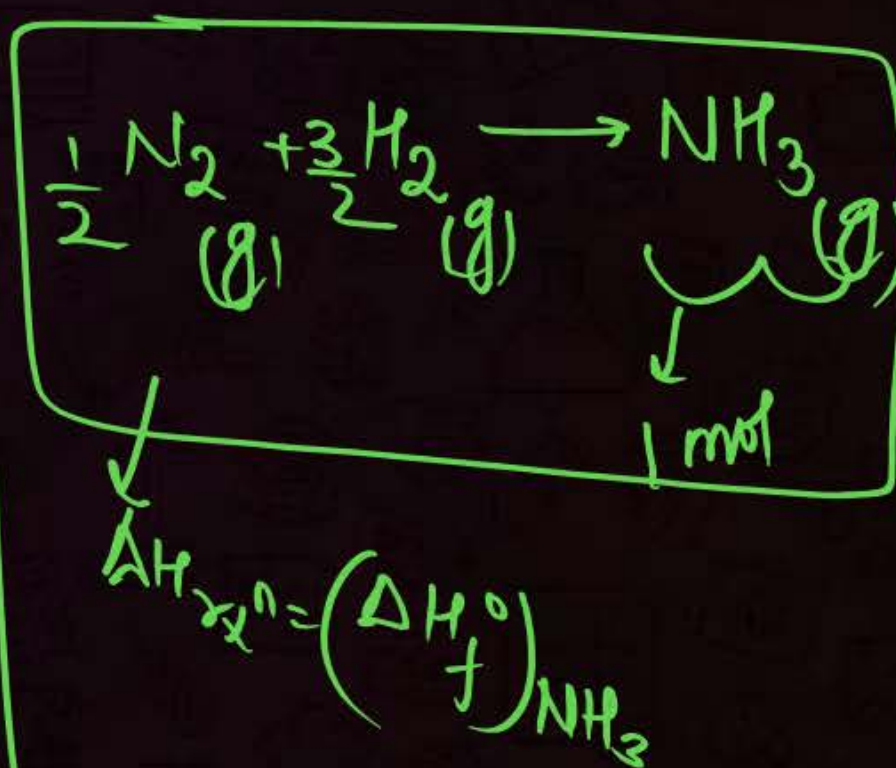 1/2 N₂ (g) + 3/2 H₂ (g) → NH₃ (g)
1 mol
ΔH rxⁿ = (ΔH°f) NH₃